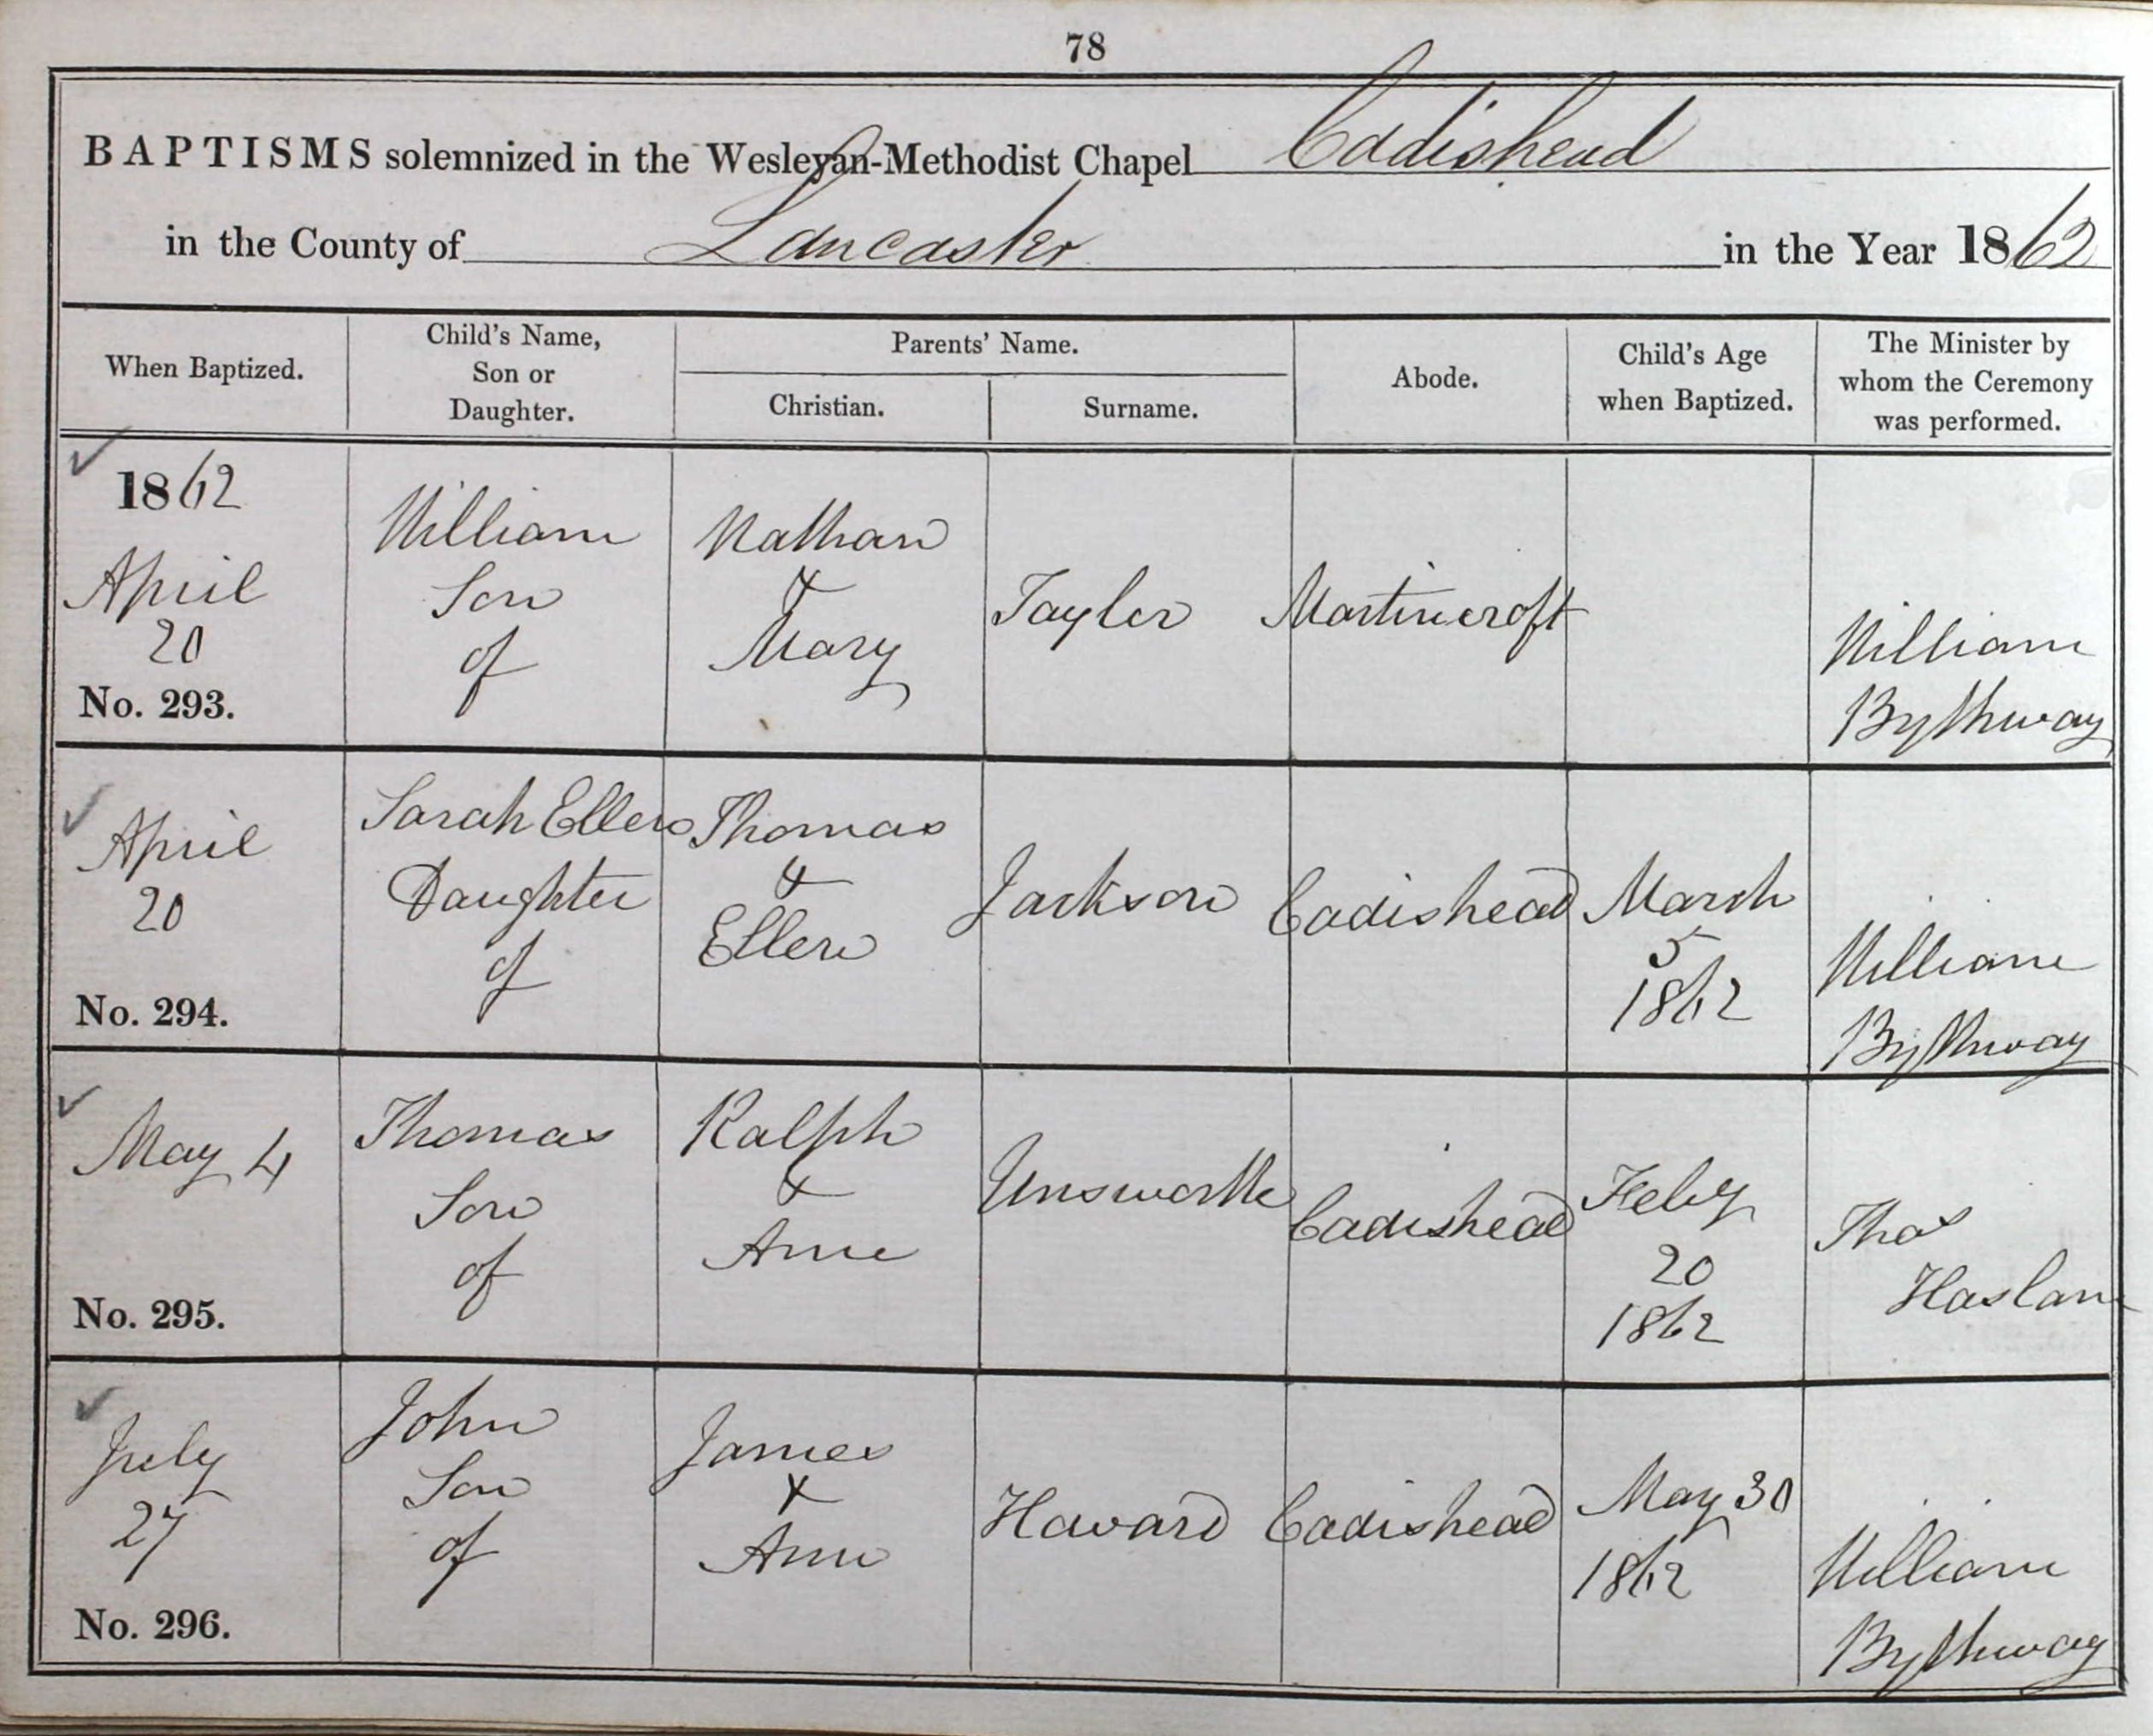 78
BAPTISMS solemnized in the Wesleyan-Methodist Chapel Cadishead
in the County of Lancaster in the Year 1862
When Baptized.
Child's Name,
Son or
Daughter.
Parents' Name.
Christian.
Surname.
Abode.
Child's Age
when Baptized.
The Minister by
whom the Ceremony
was performed.
1862
April
20
No. 293.
William
Son
of
Nathan
&
Mary
Tayler
Martincroft
William
Bythway
April
20
No. 294.
Sarah Ellen
Daughter
of
Thomas
&
Ellen
Jackson
Cadishead
March
5
1862
William
Bythway
May 4
No. 295.
Thomas
Son
of
Ralph
&
Ann
Unsworth
Cadishead
Feby
20
1862
Thos
Haslam
July
27
No. 296.
John
Son
of
James
&
Ann
Havard
Cadishead
May 30
1862
William
Bythway